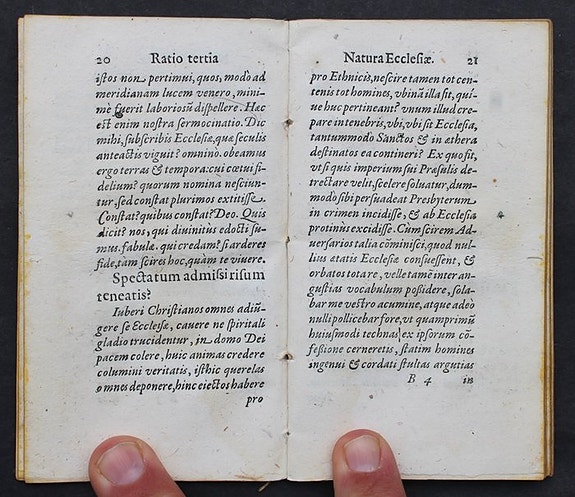 20 Ratio tertia
istos non pertimui, quos, modò ad
meridianam lucem venero, mini-
mè fuerit laboriosū dispellere. Hæc
est enim nostra sermocinatio. Dic
mihi, subscribis Ecclesiæ, quæ seculis
anteactis viguit? omninò. obeamus
ergo terras & tempora: cui cœtui fi-
delium? quorum nomina nesciun-
tur, sed constat plurimos extitisse.
Constat? quibus constat? Deo. Quis
dicit? nos, qui diuinitus edocti su-
mus. fabulæ. qui credam? si arderes
fide, tam scires hoc, quàm te viuere.
Spectatum admissi risum
teneatis?
Iuberi Christianos omnes adiū-
gere se Ecclesiæ, cauere ne spiritali
gladio trucidentur, in domo Dei
pacem colere, huic animas credere
columini veritatis, isthic querelas
omnes deponere, hinc eiectos habere
pro
Natura Ecclesiæ. 21
pro Ethnicis, nescire tamen tot cen-
tenis tot homines, vbinā illa sit, qui-
ue huc pertineant? vnum illud cre-
pare in tenebris, vbi, vbi sit Ecclesia,
tantummodo Sanctos & in æthera
destinatos ea contineri? Ex quo fit,
vt si quis imperium sui Præsulis de-
trectare velit, scelere soluatur, dum-
modo sibi persuadeat Presbyterum
in crimen incidisse, & ab Ecclesia
protinùs excidisse. Cùm scirem Ad-
uersarios talia cōminisci, quod nul-
lius ætatis Ecclesiæ consuessent, &
orbatos tota re, velle tamē inter an-
gustias vocabulum possidere, sola-
bar me vestro acumine, atque adeò
nulli pollicebar fore, vt quamprimū
huiusmodi technas ex ipsorum cō-
fessione cerneretis, statim homines
ingenui & cordati stultas argutias
B 4 in